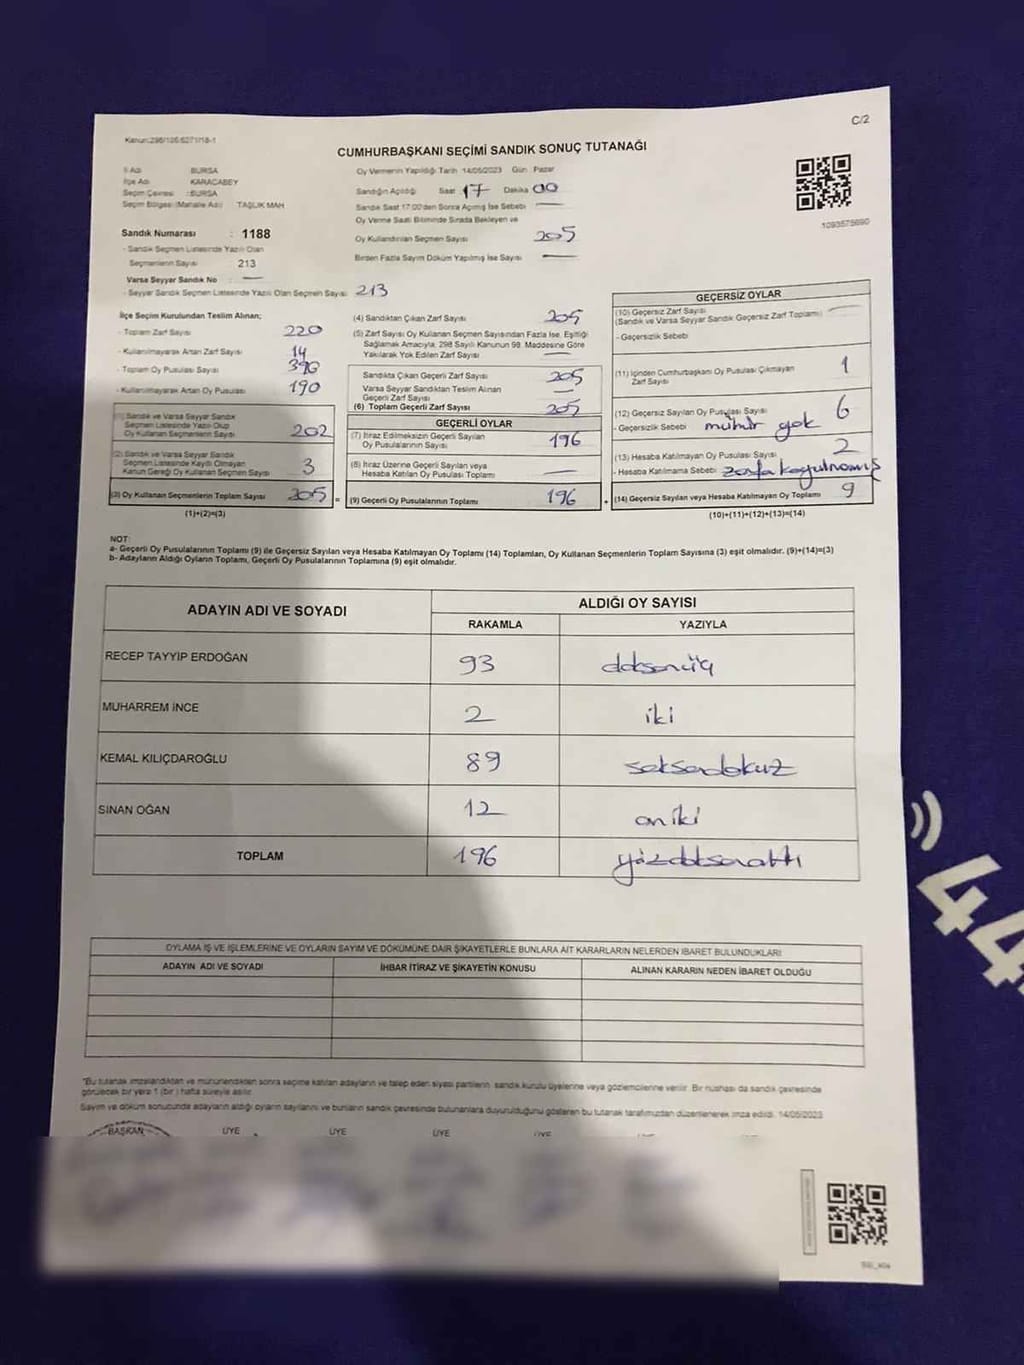 Kanun:298/106 6271/18-1
C/2
CUMHURBAŞKANI SEÇİMİ SANDIK SONUÇ TUTANAĞI
İl Adı BURSA
İlçe Adı KARACABEY
Seçim Çevresi :BURSA
Seçim Bölgesi (Mahalle Adı) TAŞLIK MAH
Sandık Numarası : 1188
- Sandık Seçmen Listesinde Yazılı Olan
Seçmenlerin Sayısı 213
Varsa Seyyar Sandık No : —
- Seyyar Sandık Seçmen Listesinde Yazılı Olan Seçmen Sayısı: 213
Oy Vermenin Yapıldığı Tarih 14/05/2023 Gün Pazar
Sandığın Açıldığı Saat 17 Dakika 00
Sandık Saat 17:00'den Sonra Açılmış İse Sebebi —
Oy Verme Saati Bitiminde Sırada Bekleyen ve
Oy Kullandırılan Seçmen Sayısı 205
Birden Fazla Sayım Döküm Yapılmış İse Sayısı —
1093575690
İlçe Seçim Kurulundan Teslim Alınan;
- Toplam Zarf Sayısı 220
- Kullanılmayarak Artan Zarf Sayısı 14
- Toplam Oy Pusulası Sayısı 390
- Kullanılmayarak Artan Oy Pusulası 190
(1) Sandık ve Varsa Seyyar Sandık
Seçmen Listesinde Yazılı Olup
Oy Kullanan Seçmenlerin Sayısı 202
(2) Sandık ve Varsa Seyyar Sandık
Seçmen Listesinde Kayıtlı Olmayan
Kanun Gereği Oy Kullanan Seçmen Sayısı 3
(3) Oy Kullanan Seçmenlerin Toplam Sayısı 205 =
(1)+(2)=(3)
(4) Sandıktan Çıkan Zarf Sayısı 205
(5) Zarf Sayısı Oy Kullanan Seçmen Sayısından Fazla İse, Eşitliği
Sağlamak Amacıyla, 298 Sayılı Kanunun 98. Maddesine Göre
Yakılarak Yok Edilen Zarf Sayısı —
Sandıkta Çıkan Geçerli Zarf Sayısı 205
Varsa Seyyar Sandıktan Teslim Alınan
Geçerli Zarf Sayısı —
(6) Toplam Geçerli Zarf Sayısı 205
GEÇERLİ OYLAR
(7) İtiraz Edilmeksizin Geçerli Sayılan
Oy Pusulalarının Sayısı 196
(8) İtiraz Üzerine Geçerli Sayılan veya
Hesaba Katılan Oy Pusulası Toplamı —
(9) Geçerli Oy Pusulalarının Toplamı 196 +
GEÇERSİZ OYLAR
(10) Geçersiz Zarf Sayısı
(Sandık ve Varsa Seyyar Sandık Geçersiz Zarf Toplamı) —
- Geçersizlik Sebebi
(11) İçinden Cumhurbaşkanı Oy Pusulası Çıkmayan
Zarf Sayısı 1
(12) Geçersiz Sayılan Oy Pusulası Sayısı 6
- Geçersizlik Sebebi mühür yok
(13) Hesaba Katılmayan Oy Pusulası Sayısı 2
- Hesaba Katılmama Sebebi zarfa koyulmamış
(14) Geçersiz Sayılan veya Hesaba Katılmayan Oy Toplamı 9
(10)+(11)+(12)+(13)=(14)
NOT:
a- Geçerli Oy Pusulalarının Toplamı (9) ile Geçersiz Sayılan veya Hesaba Katılmayan Oy Toplamı (14) Toplamları, Oy Kullanan Seçmenlerin Toplam Sayısına (3) eşit olmalıdır. (9)+(14)=(3)
b- Adayların Aldığı Oyların Toplamı, Geçerli Oy Pusulalarının Toplamına (9) eşit olmalıdır.
ADAYIN ADI VE SOYADI ALDIĞI OY SAYISI
RAKAMLA YAZIYLA
RECEP TAYYİP ERDOĞAN 93 doksanüç
MUHARREM İNCE 2 iki
KEMAL KILIÇDAROĞLU 89 seksendokuz
SİNAN OĞAN 12 oniki
TOPLAM 196 yüzdoksanaltı
OYLAMA İŞ VE İŞLEMLERİNE VE OYLARIN SAYIM VE DÖKÜMÜNE DAİR ŞİKAYETLERLE BUNLARA AİT KARARLARIN NELERDEN İBARET BULUNDUKLARI
ADAYIN ADI VE SOYADI İHBAR İTİRAZ VE ŞİKAYETİN KONUSU ALINAN KARARIN NEDEN İBARET OLDUĞU
"Bu tutanak imzalandıktan ve mühürlendikten sonra seçime katılan adayların ve talep eden siyasi partilerin sandık kurulu üyelerine veya gözlemcilerine verilir. Bir nüshası da sandık çevresinde
görülecek bir yere 1 (bir) hafta süreyle asılır.
Sayım ve döküm sonucunda adayların aldığı oyların sayılarını ve bunların sandık çevresinde bulunanlara duyurulduğunu gösteren bu tutanak tarafımızdan düzenlenerek imza edildi. 14/05/2023
BAŞKAN ÜYE ÜYE ÜYE ÜYE
44